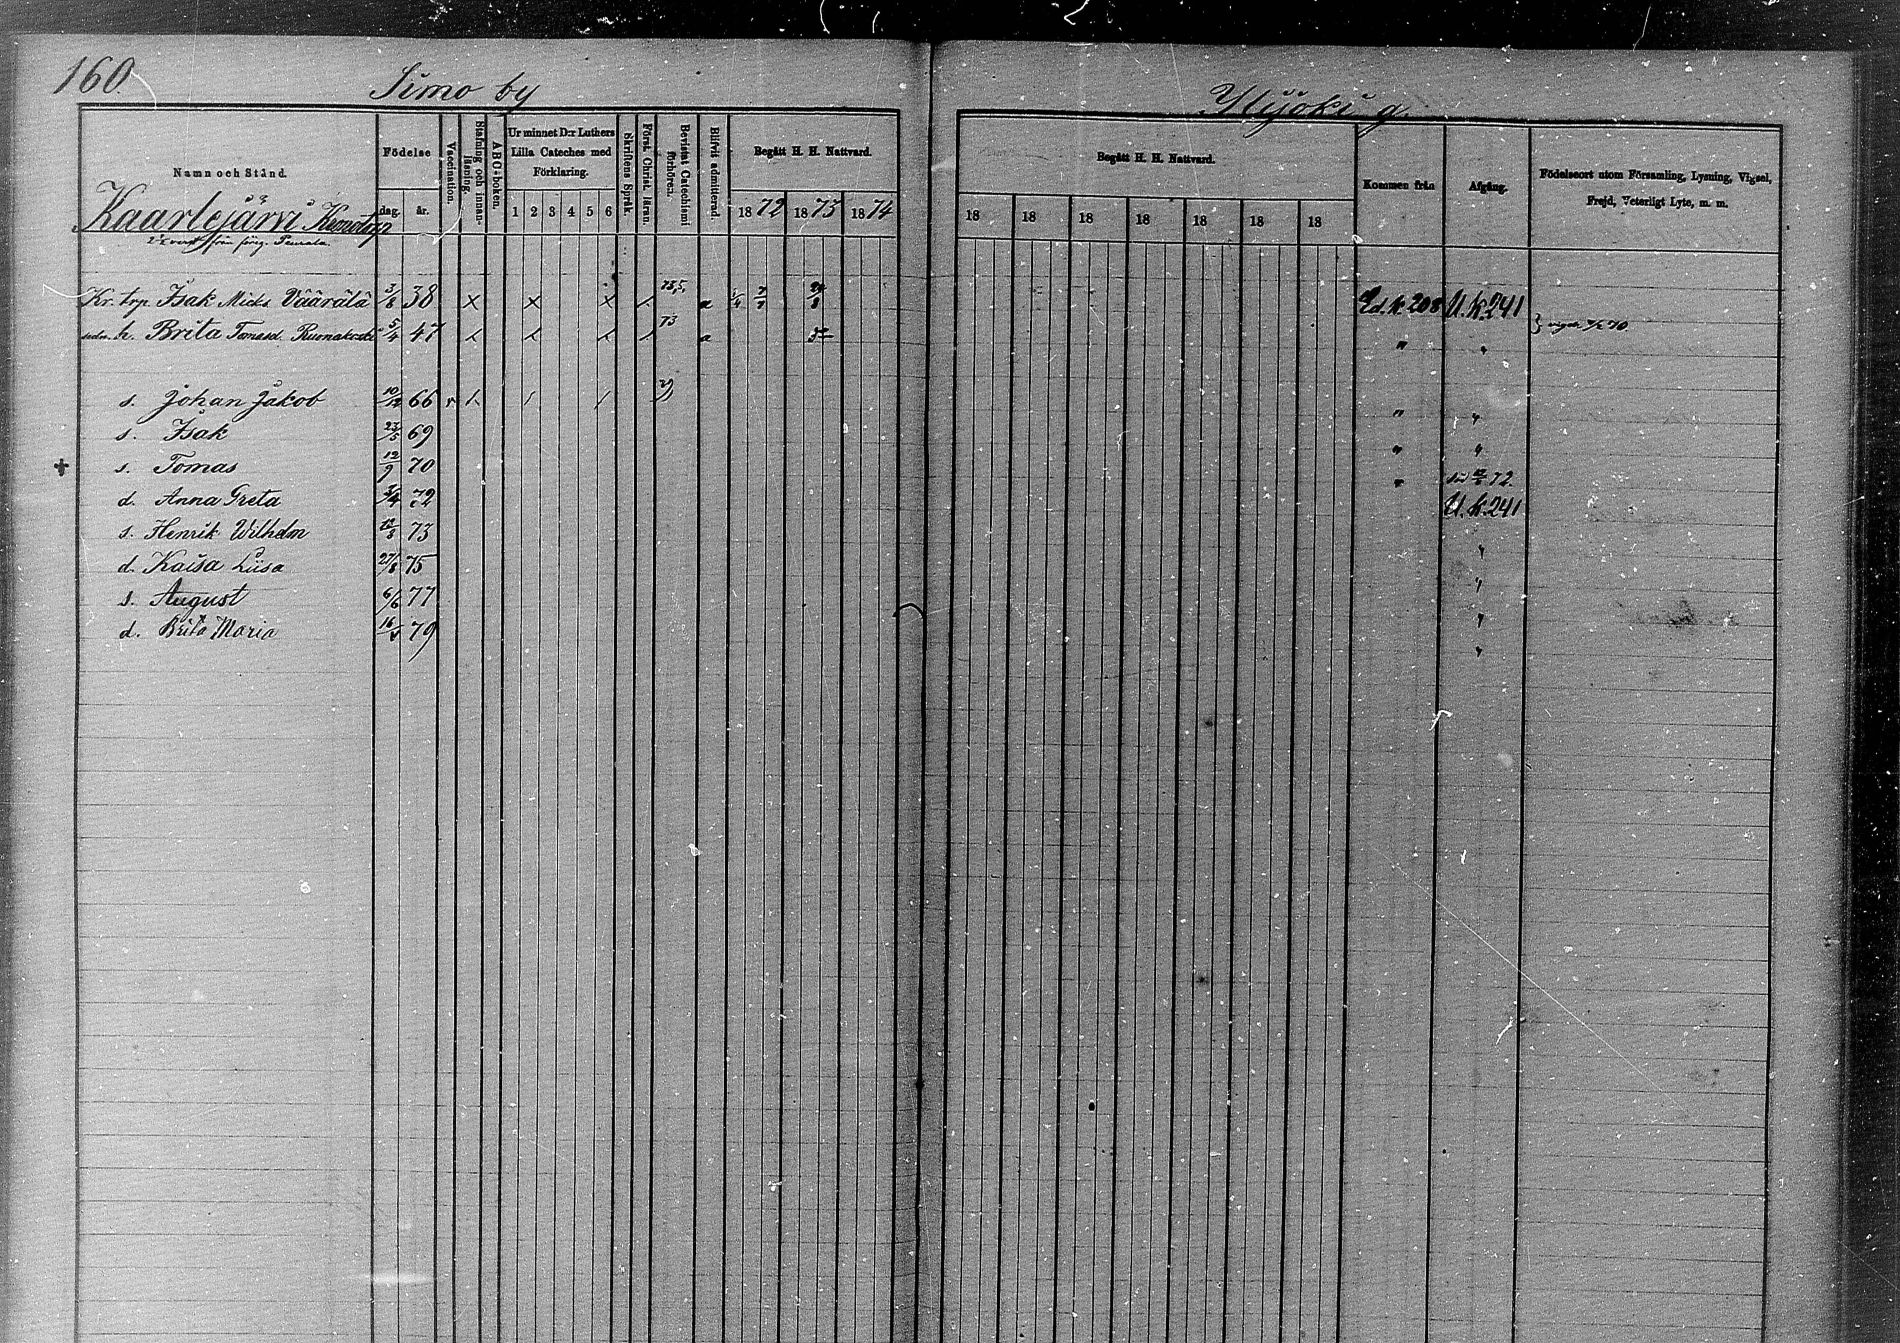 160
Simo by
Ylijoki g.
Namn och Stånd.
Födelse
dag. år.
Vaccination.
Stafning och innanläsning.
ABC-boken.
Ur minnet D:r Luthers Lilla Cateches med Förklaring.
1 2 3 4 5 6
Skriftens Språk.
Försk. Christ. läran.
Bevistat Catechismi förhören.
Blifwit admitterad
Begått H. H. Nattvard.
1872 1873 1874
Begått H. H. Nattvard.
18 18 18 18 18 18 18
Kommen från
Afgång.
Födelseort utom Församling, Lysning, Vigsel, Frejd, Veterligt Lyte, m. m.
Kaarlejärvi Kronotrp
Kr. trp. Isak Micks Väärälä 3/8 38 × × × a Ed. k. 208 U. k. 241
h. Brita Tomasd. 5/4 47 73 a " "
s. Johan Jakob 10/12 66 v " "
s. Isak 23/5 69 " "
+ s. Tomas 12/9 70 " 72.
d. Anna Greta 72 U. k. 241
s. Henrik Wilhelm 73 "
d. Kaisa Liisa 27/8 75 "
s. August 6/6 77 "
d. Brita Maria 79 "